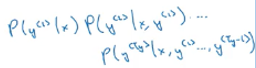 P(y^{<1>}|x) P(y^{<2>}|x, y^{<1>}) ...
P(y^{<T_y>}|x, y^{<1>}, ..., y^{<T_y-1>})